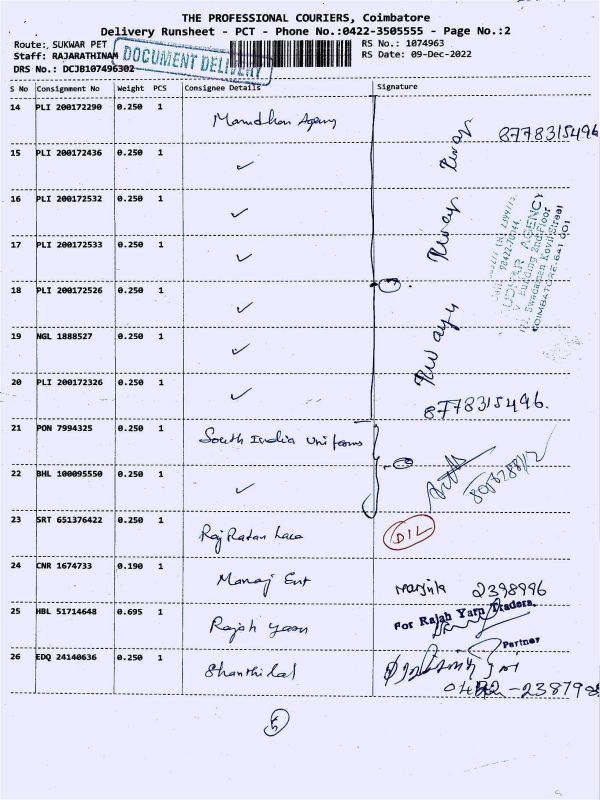 THE PROFESSIONAL COURIERS, Coimbatore
Delivery Runsheet - PCT - Phone No.:0422-3505555 - Page No.:2
Route: SUKWAR PET RS No.: 1074963
Staff: RAJARATHINAM DOCUMENT DELIVERY RS Date: 09-Dec-2022
DRS No.: DCJB107496302
S No Consignment No Weight PCS Consignee Details Signature
14 PLI 200172290 0.250 1 Agency 8778315496
15 PLI 200172436 0.250 1 ✓
16 PLI 200172532 0.250 1 ✓
17 PLI 200172533 0.250 1 ✓
AGENCY
Building 2nd Floor
COIMBATORE-641 001
18 PLI 200172526 0.250 1 ✓
19 NGL 1888527 0.250 1 ✓
20 PLI 200172326 0.250 1 ✓
8778315496.
21 PON 7994325 0.250 1 South India Uniforms
22 BHL 100095550 0.250 1 ✓
23 SRT 651376422 0.250 1 Raj Ratan Lace D/L
24 CNR 1674733 0.190 1 Manoj Ent 2398996
25 HBL 51714648 0.695 1 Rajah Yarn For Rajah Yarn Traders,
Partner
26 EDQ 24140636 0.250 1 Shanthilal